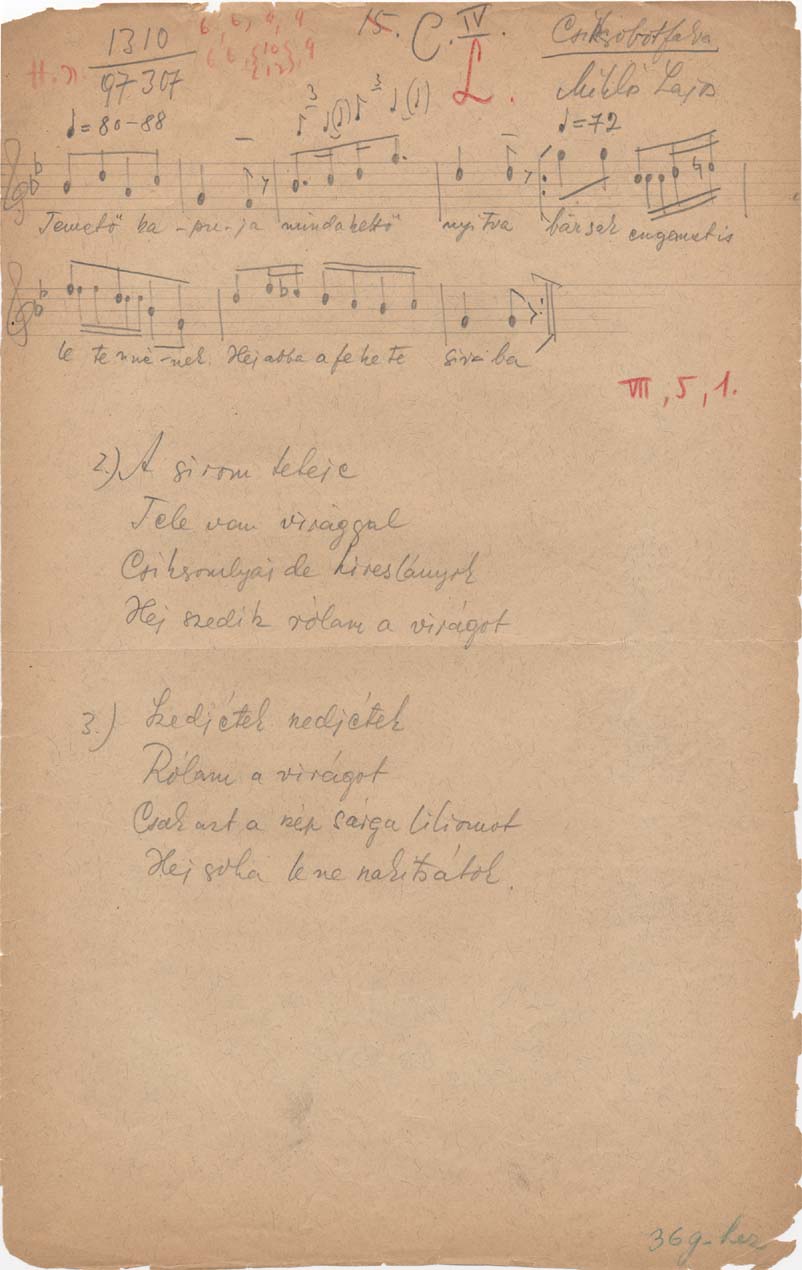 1310
97307
6, 6, 9, 9
15. C. IV.
L.
Csíksobotfalva
Miklós Lajos
♩= 80-88
3
3
♩=72
Temető ka-pu-ja mindakettő nyitva bársak engemet is
le tenné-nek Hej abba a fekete sirba
VII, 5, 1.
2.) A sirom teleje
Tele van virággal
Csiksomlyai de hireslányok
Hej szedik rólam a virágot
3.) Szedjétek nedjétek
Rólam a virágot
Csak azt a szép sárga liliomot
Hej soha le ne szakitsátok.